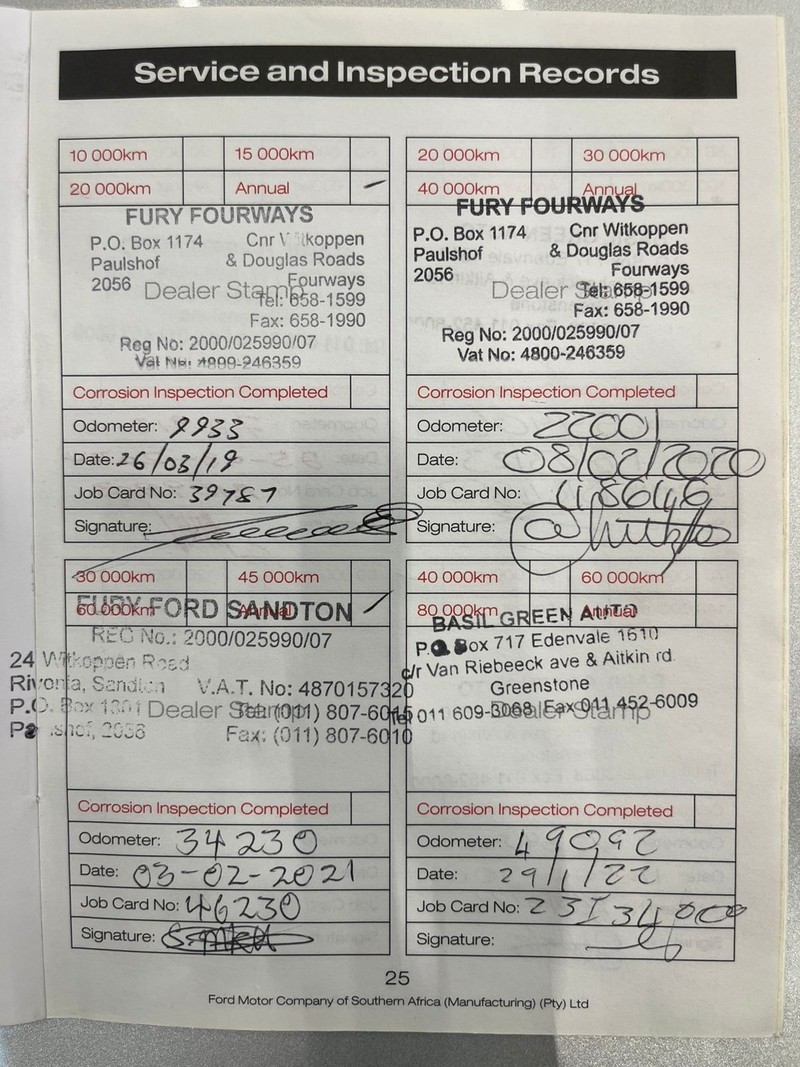 Service and Inspection Records
10 000km 15 000km
20 000km Annual
FURY FOURWAYS
P.O. Box 1174 Cnr Witkoppen
Paulshof & Douglas Roads
2056 Fourways
Dealer Stamp
Tel: 658-1599
Fax: 658-1990
Reg No: 2000/025990/07
Vat No: 4800-246359
Corrosion Inspection Completed
Odometer: 9933
Date: 26/03/19
Job Card No: 39787
Signature:
20 000km 30 000km
40 000km Annual
FURY FOURWAYS
P.O. Box 1174 Cnr Witkoppen
Paulshof & Douglas Roads
2056 Fourways
Dealer Stamp
Tel: 658-1599
Fax: 658-1990
Reg No: 2000/025990/07
Vat No: 4800-246359
Corrosion Inspection Completed
Odometer: 22001
Date: 08/02/2020
Job Card No:
Signature:
30 000km 45 000km
60 000km Annual
FURY FORD SANDTON
REG No.: 2000/025990/07
24 Witkoppen Road
Rivonia, Sandton V.A.T. No: 4870157320
P.O. Box Dealer Stamp Tel: (011) 807-6045
Paulshof, 2056 Fax: (011) 807-6010
Corrosion Inspection Completed
Odometer: 34230
Date: 03-02-2021
Job Card No: 46230
Signature:
40 000km 60 000km
80 000km Annual
BASIL GREEN AUTO
P.O. Box 717 Edenvale 1610
c/r Van Riebeeck ave & Aitkin rd
Greenstone
Dealer Stamp
Tel 011 609-3068 Fax 011 452-6009
Corrosion Inspection Completed
Odometer: 49092
Date: 29/1/22
Job Card No:
Signature:
25
Ford Motor Company of Southern Africa (Manufacturing) (Pty) Ltd